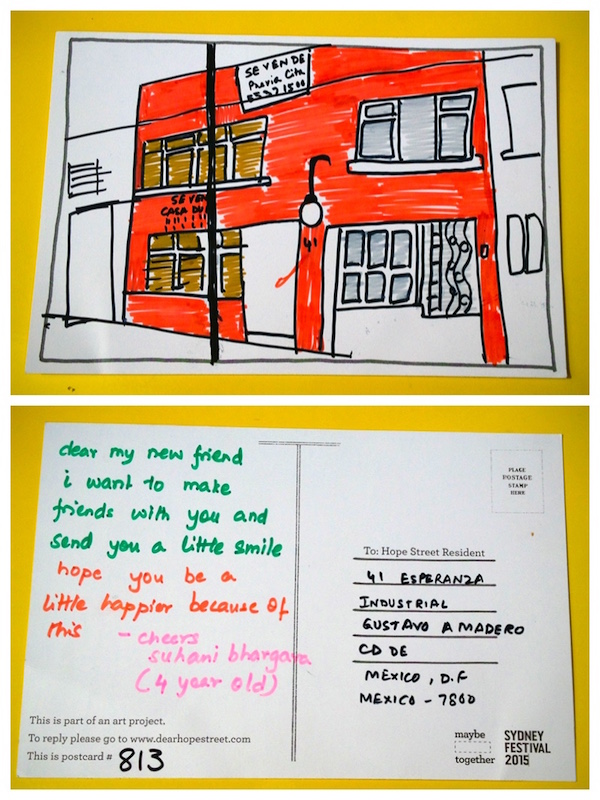 SE VENDE
Previa Cita
5537 1500
SE VEN
CASA DU
41
dear my new friend
i want to make
friends with you and
send you a little smile
hope you be a
little happier because of
this
- cheers
suhani bhargava
(4 year old)
This is part of an art project.
To reply please go to www.dearhopestreet.com
This is postcard # 813
PLACE
POSTAGE
STAMP
HERE
To: Hope Street Resident
41 ESPERANZA
INDUSTRIAL
GUSTAVO A MADERO
CD DE
MEXICO, D.F
MEXICO - 7800
maybe
together
SYDNEY
FESTIVAL
2015